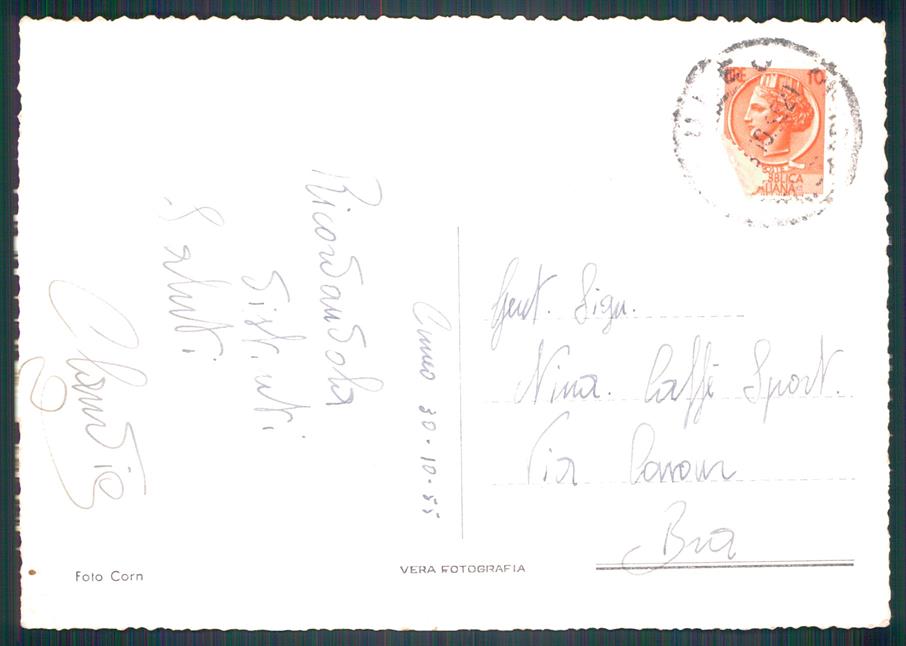 Cuneo 30-10-55
Ricordandola
dist.nti
Saluti
Claudio
Gent. Sign.
Nina. Caffè Sport.
Via Cavour
Bra
LIRE 10
BBLICA
LIANA
Foto Corn
VERA FOTOGRAFIA